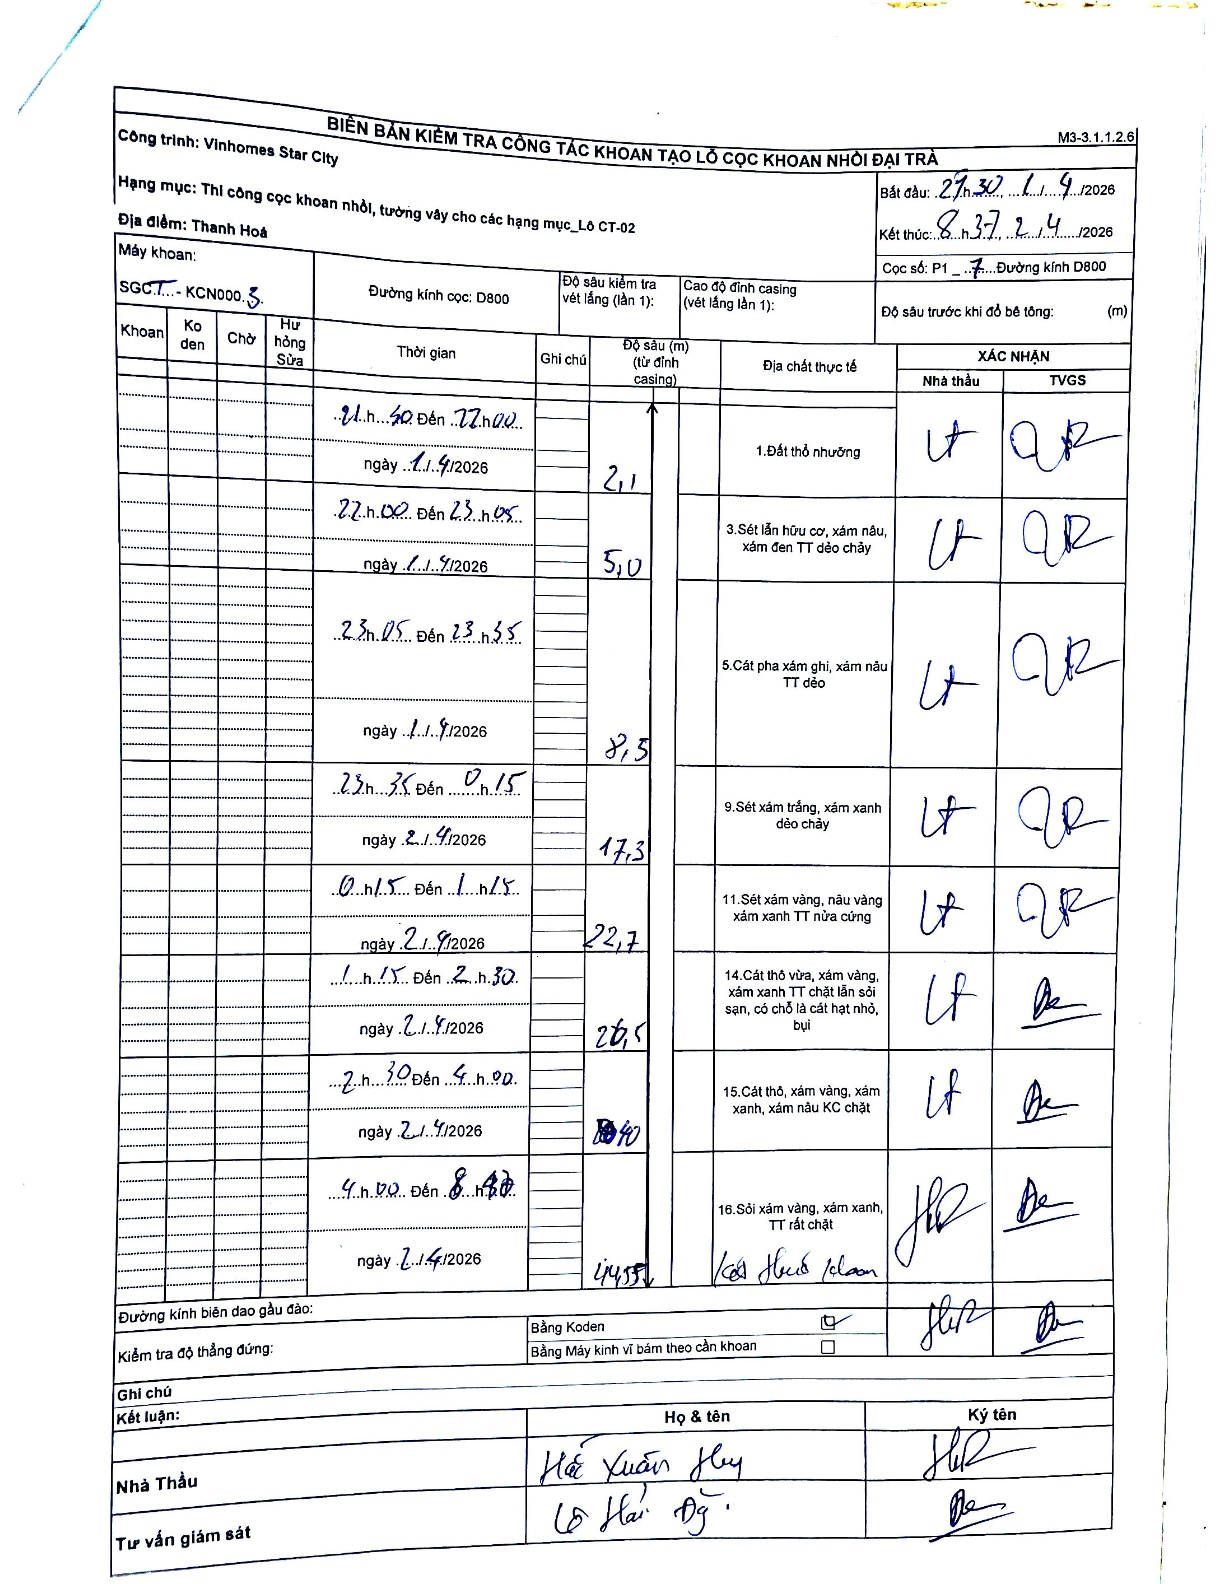 BIÊN BẢN KIỂM TRA CÔNG TÁC KHOAN TẠO LỖ CỌC KHOAN NHỒI ĐẠI TRÀ
M3-3.1.1.2.6
Công trình: Vinhomes Star City
Hạng mục: Thi công cọc khoan nhồi, tường vây cho các hạng mục_Lô CT-02
Địa điểm: Thanh Hoá
Bắt đầu: 21h30, 1/4/2026
Kết thúc: 8h37, 2/4/2026
Cọc số: P1 _ 7 Đường kính D800
Máy khoan:
SGCT - KCN000.3
Đường kính cọc: D800
Độ sâu kiểm tra vét lắng (lần 1):
Cao độ đỉnh casing (vét lắng lần 1):
Độ sâu trước khi đổ bê tông: (m)
Khoan
Ko den
Chờ
Hư hỏng Sửa
Thời gian
Ghi chú
Độ sâu (m) (từ đỉnh casing)
Địa chất thực tế
XÁC NHẬN
Nhà thầu
TVGS
21h30 Đến 22h00
ngày 1/4/2026
2,1
1.Đất thổ nhưỡng
22h00 Đến 23h05
ngày 1/4/2026
5,0
3.Sét lẫn hữu cơ, xám nâu, xám đen TT dẻo chảy
23h05 Đến 23h35
ngày 1/4/2026
8,5
5.Cát pha xám ghi, xám nâu TT dẻo
23h35 Đến 0h15
ngày 2/4/2026
17,3
9.Sét xám trắng, xám xanh dẻo chảy
0h15 Đến 1h15
ngày 2/4/2026
22,7
11.Sét xám vàng, nâu vàng xám xanh TT nửa cứng
1h15 Đến 2h30
ngày 2/4/2026
26,5
14.Cát thô vừa, xám vàng, xám xanh TT chặt lẫn sỏi sạn, có chỗ là cát hạt nhỏ, bụi
2h30 Đến 4h00
ngày 2/4/2026
40
15.Cát thô, xám vàng, xám xanh, xám nâu KC chặt
4h00 Đến 8h
ngày 2/4/2026
44,55
16.Sỏi xám vàng, xám xanh, TT rất chặt
Kết thúc khoan
Đường kính biên dao gầu đào:
Kiểm tra độ thẳng đứng:
Bằng Koden
Bằng Máy kinh vĩ bám theo cần khoan
Ghi chú
Kết luận:
Họ & tên
Ký tên
Nhà Thầu
Xuân Huy
Tư vấn giám sát
Lê Hải